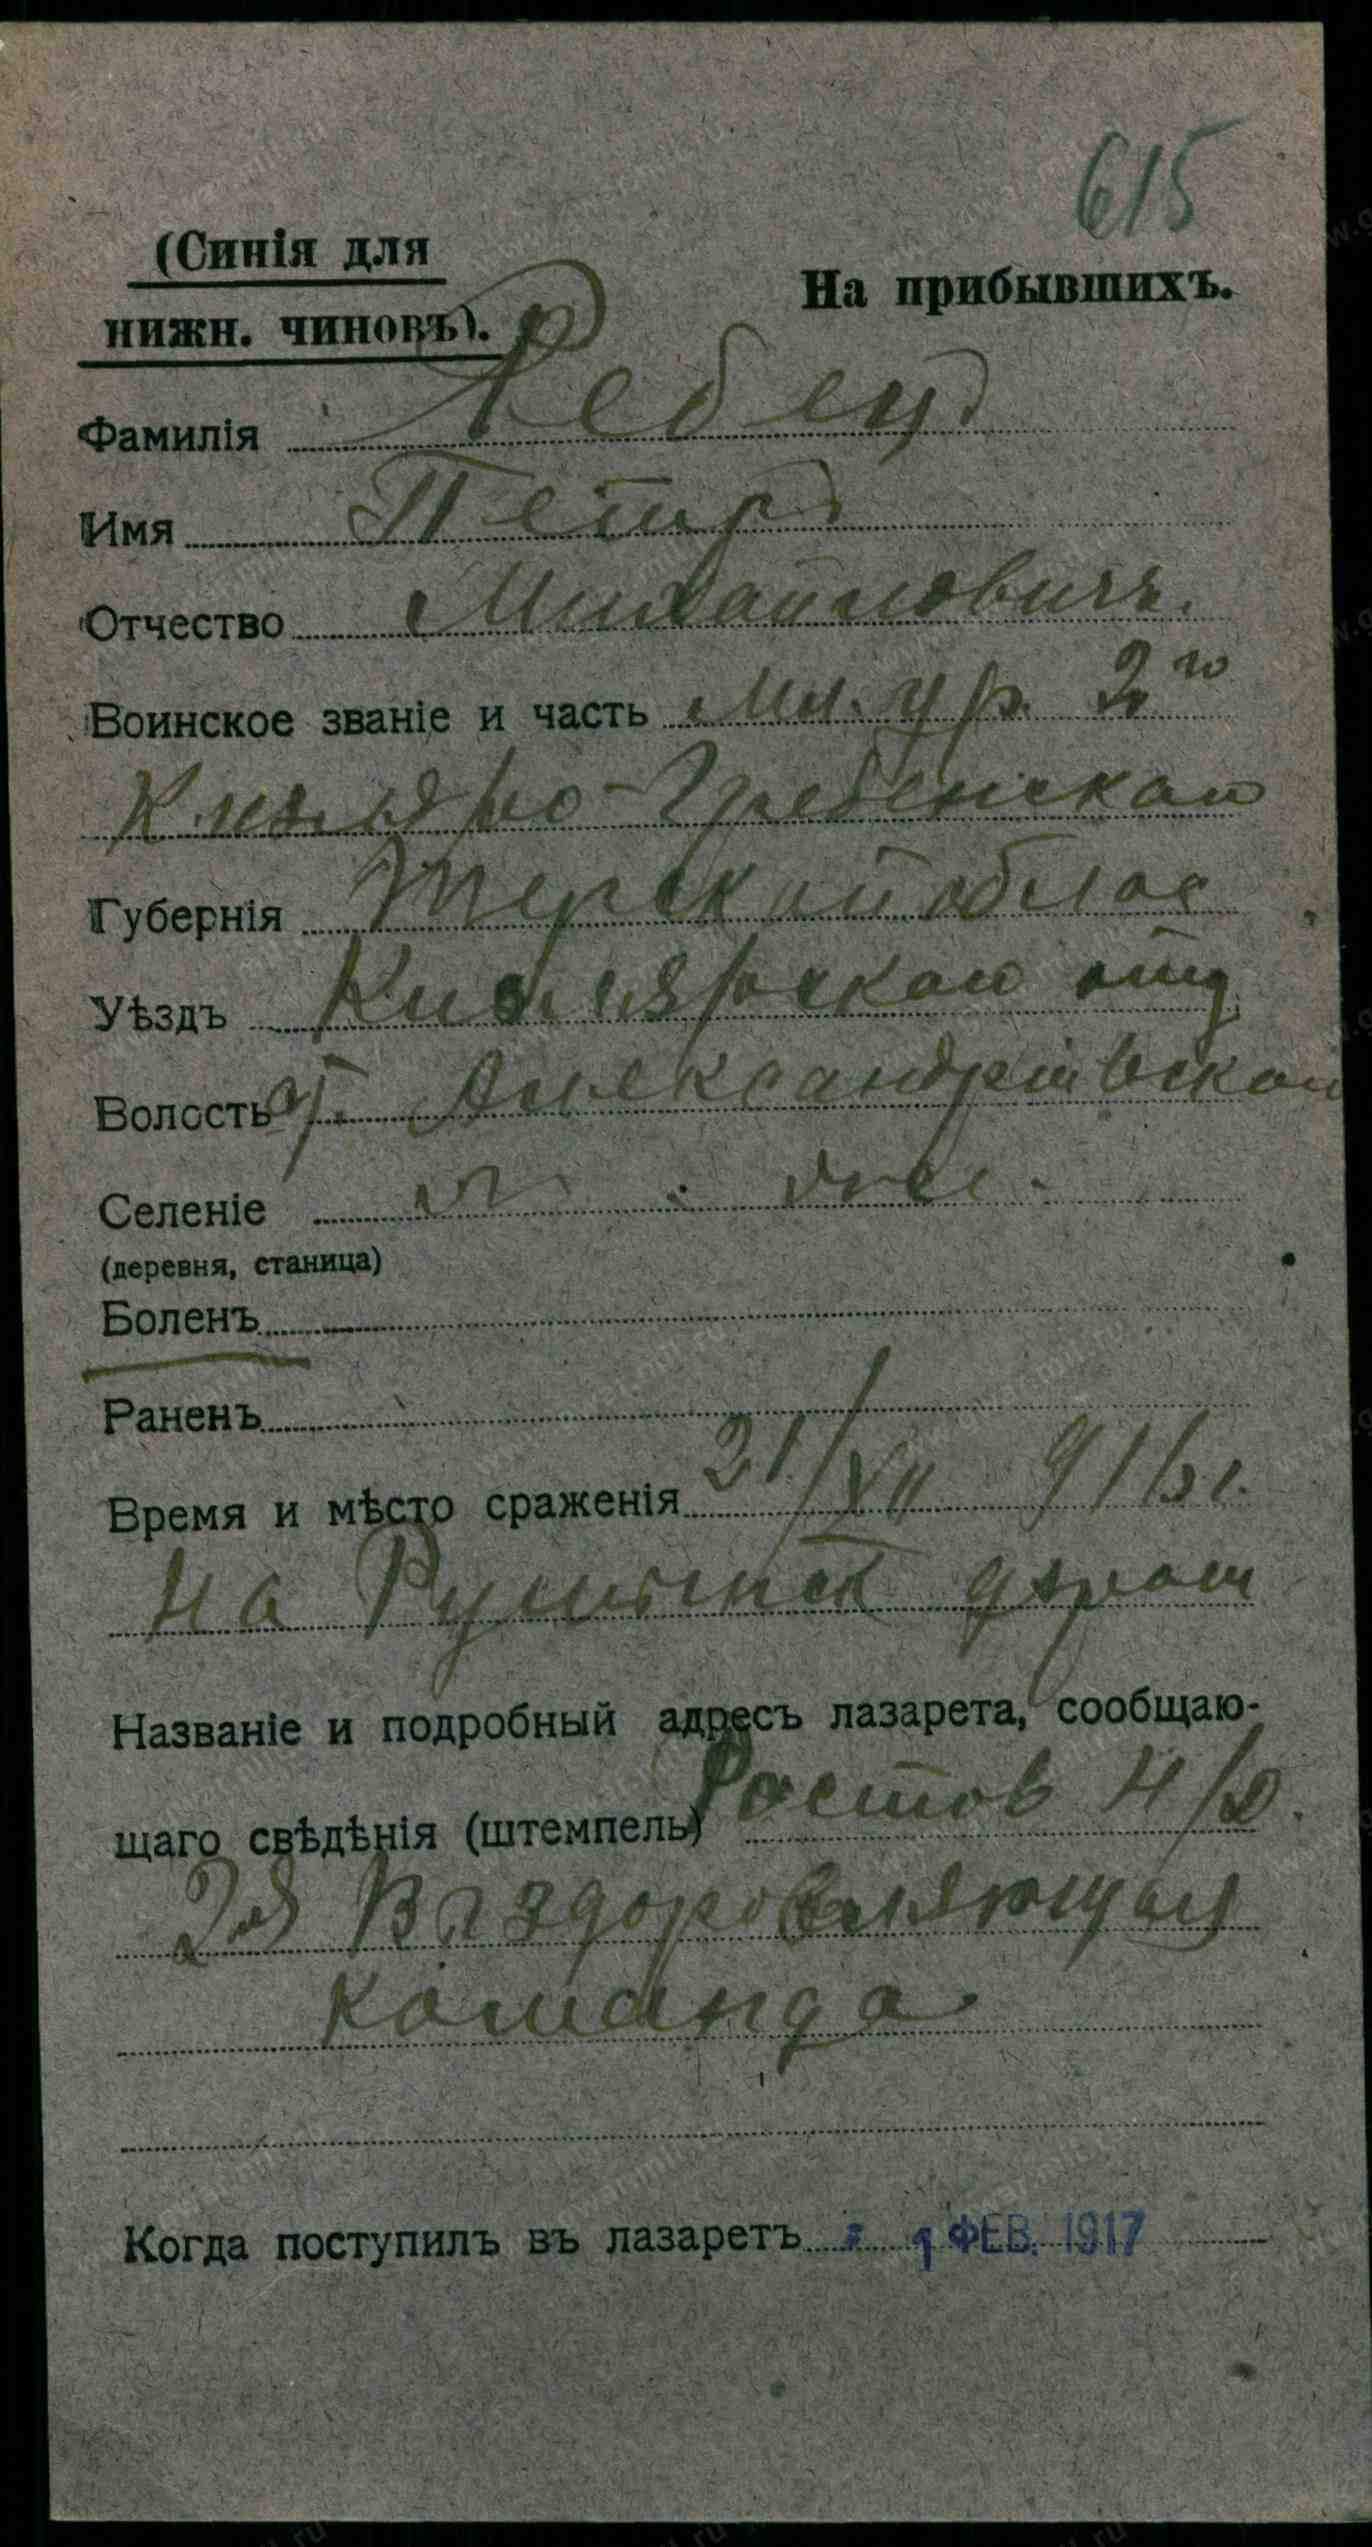 615
(Синія для
нижн. чиновъ).
На прибывшихъ.
Фамилія Ребецъ
Имя Петръ
Отчество Михайловичъ.
Воинское званіе и часть Мл. ур. 2го
Кизляро-Гребенскаго
Губернія Терской облас
Уѣздъ Кизлярскаго отд
Волость ст. Александрійской
Селеніе
(деревня, станица)
Боленъ
Раненъ
Время и мѣсто сраженія 21/XII 916 г.
на Румынск фронт
Названіе и подробный адресъ лазарета, сообщаю-
щаго свѣдѣнія (штемпель) Ростов Н/Д.
2я Выздоровляющая
команда
Когда поступилъ въ лазаретъ 1 ФЕВ. 1917